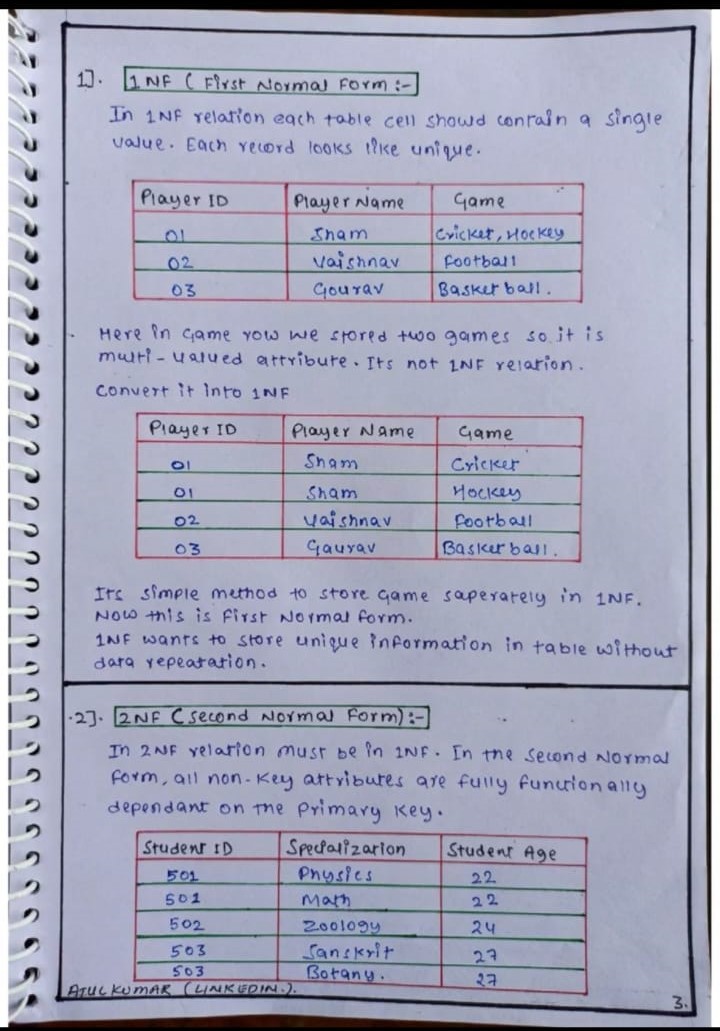 1]. 1NF ( First Normal Form :-
In 1NF relation each table cell should contain a single
value. Each record looks like unique.
Player ID Player Name Game
01 Sham Cricket, Hockey
02 Vaishnav Football
03 Gourav Basket ball.
Here in Game row we stored two games so it is
multi-valued attribute. Its not 1NF relation.
Convert it into 1NF
Player ID Player Name Game
01 Sham Cricket
01 Sham Hockey
02 Vaishnav Football
03 Gaurav Basket ball.
Its simple method to store Game saperately in 1NF.
Now this is First Normal form.
1NF wants to store unique information in table without
data repeatation.
2]. 2NF (Second Normal Form) :-
In 2NF relation must be in 1NF. In the Second Normal
form, all non-key attributes are fully functionally
dependant on the primary key.
Student ID Specialization Student Age
501 Physics 22
501 Math 22
502 Zoology 24
503 Sanskrit 27
503 Botany. 27
ATUL KUMAR (LINKEDIN.). 3.